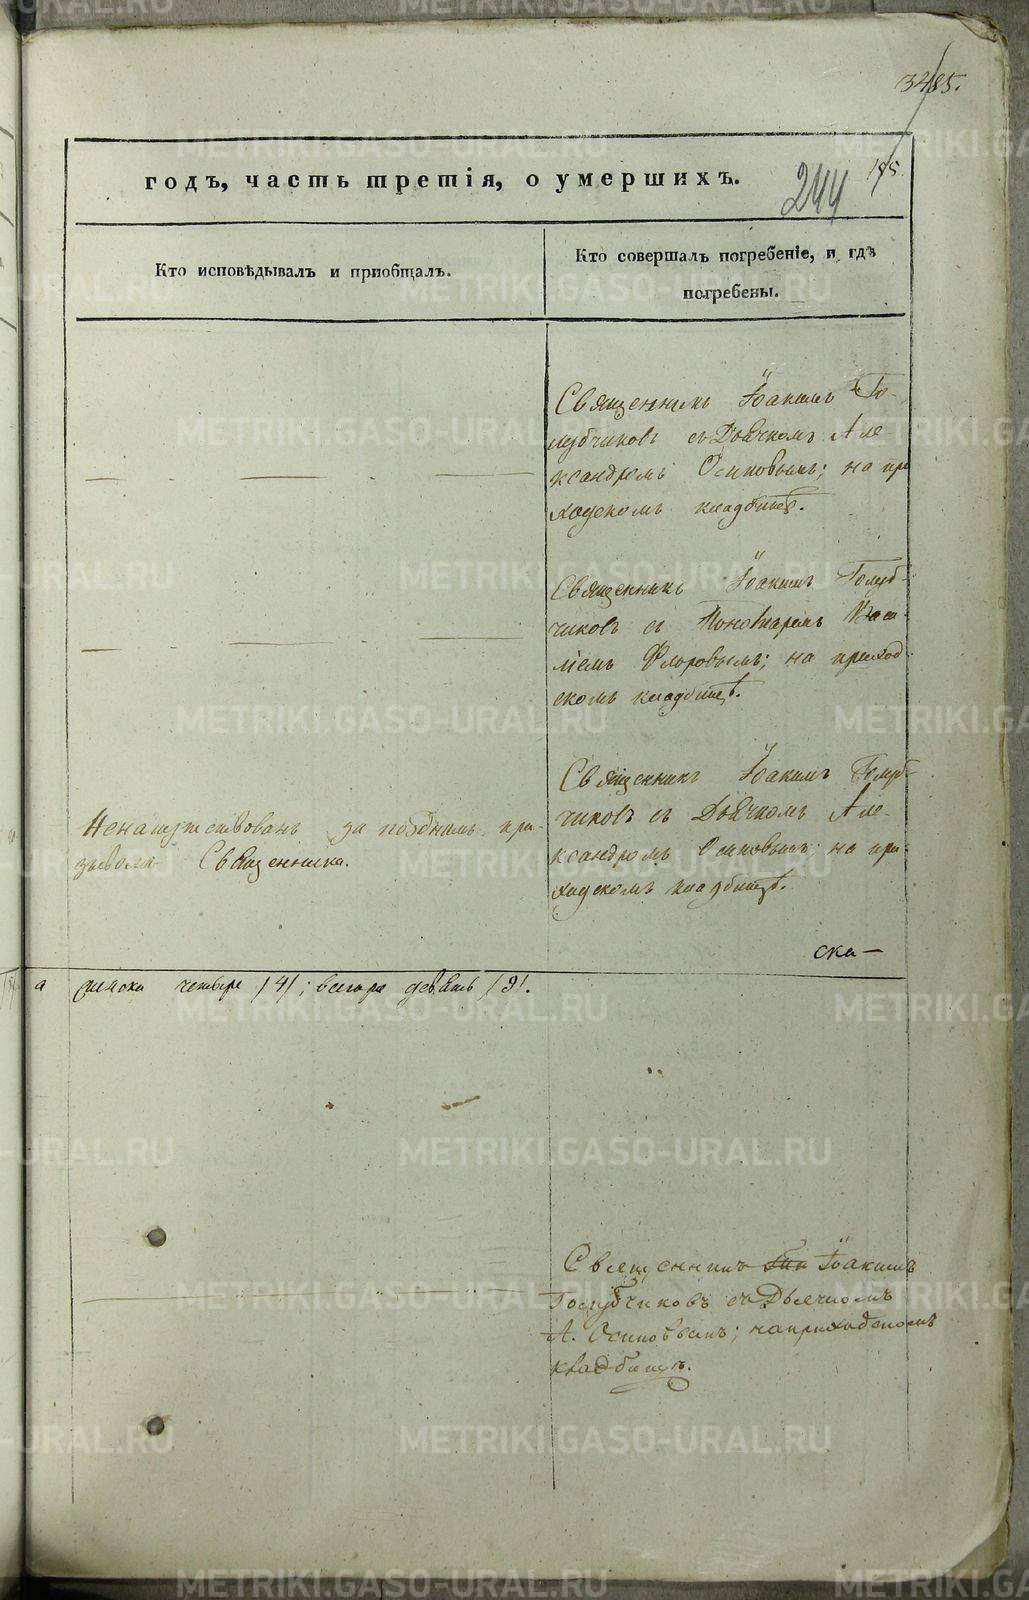 3485.
195
годъ, часть третія, о умершихъ.
244
Кто исповѣдывалъ и пріобщалъ.
Кто совершалъ погребеніе, и гдѣ
погребены.
Священникъ Іоакимъ Го-
лубчиковъ съ Дьячкомъ Але
ксандромъ Осиповымъ; на при
ходскомъ кладбищѣ.
Священникъ Іоакимъ Голуб-
чиковъ съ Пономаремъ Васи-
ліемъ Флоровымъ; на приход-
скомъ кладбищѣ.
Ненапутствованъ за позднимъ при-
зывомъ Священника.
Священникъ Іоакимъ Голуб-
чиковъ съ Дьячкомъ Але-
ксандромъ Осиповымъ; на при-
ходскомъ кладбищѣ.
ска—
а женска четыре /4/; всего девять /9/.
Священникъ Іоакимъ
Голубчиковъ съ Дьячкомъ
А. Осиповымъ; на приходскомъ
кладбищѣ.
METRIKI.GASO-URAL.RU